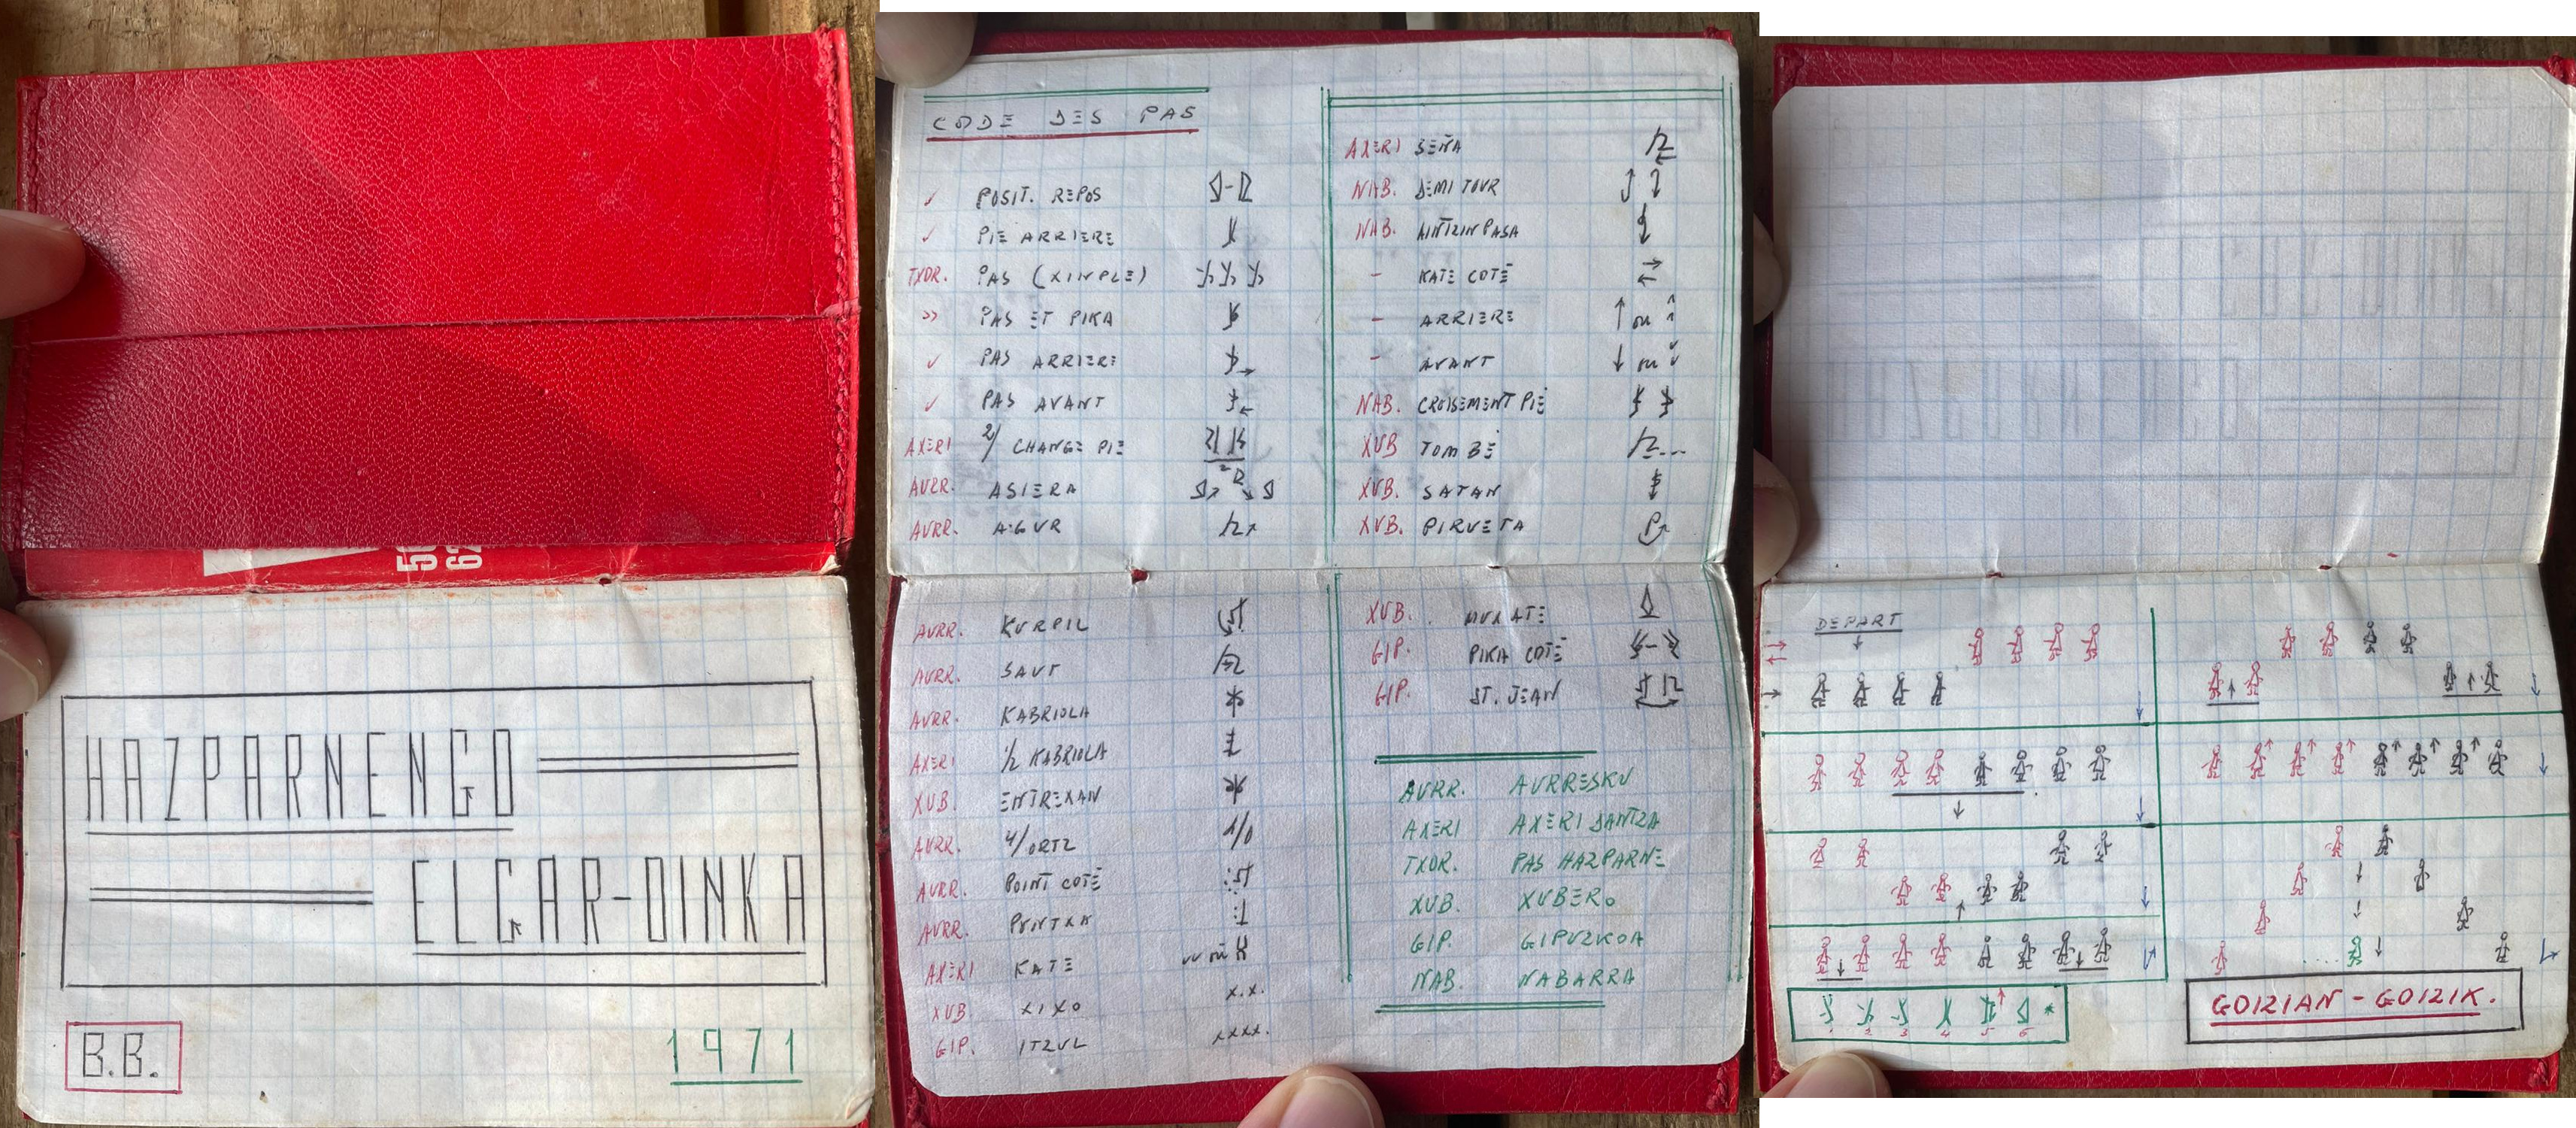 HAZPARNENGO
ELGAR-OINKA
B.B.
1971
CODE DES PAS
POSIT. REPOS
PIE ARRIERE
TXDR. PAS (XINPLE)
>> PAS ET PIKA
PAS ARRIERE
PAS AVANT
AXERI 2/ CHANGE PIE
AURR. ASIERA
AURR. AGUR
AXERI SEÑA
NAB. DEMI TOUR
NAB. AINTZIN PASA
- KATE COTE
- ARRIERE ou
- AVANT ou
NAB. CROISEMENT PIE
XUB TOMBE
XUB. SATAN
XUB. PIRUETA
AURR. KURPIL
AURR. SAUT
AURR. KABRIOLA
AXERI 1/2 KABRIOLA
XUB. ENTREXAN
AURR. 4/ORTZ
AURR. POINT COTE
AURR. PUNTXA
AXERI KATE
XUB XIXO x.x.
GIP. ITZUL xxxx.
XUB. MUXATE
GIP. PIKA COTE
GIP. ST. JEAN
AURR. AURRESKU
AXERI AXERI DANTZA
TXDR. PAS HAZPARNE
XUB. XUBERO
GIP. GIPUZKOA
NAB. NABARRA
DEPART
1 2 3 4 5 6
GOIZIAN - GOIZIK.